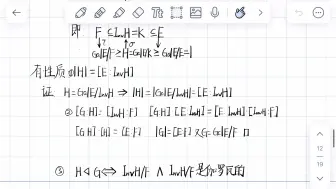 即 F ⊆ InvH = K ⊆ E
Gal E/F ≥ H = Gal E/K ≥ Gal E/E = 1
有性质 ① |H| = [E: InvH]
证 H = Gal E/InvH ⇒ |H| = |Gal E/InvH| = [E: InvH]
② [G:H] = [InvH:F] [G:H] [E:InvH] = [E:InvH] [InvH:F]
[G:H] |H| = [E:F] |G| = [E:F] 又 G = Gal E/F
③ H ◁ G ⇔ InvH/F ∧ InvH/F 是伽罗瓦的
12
19